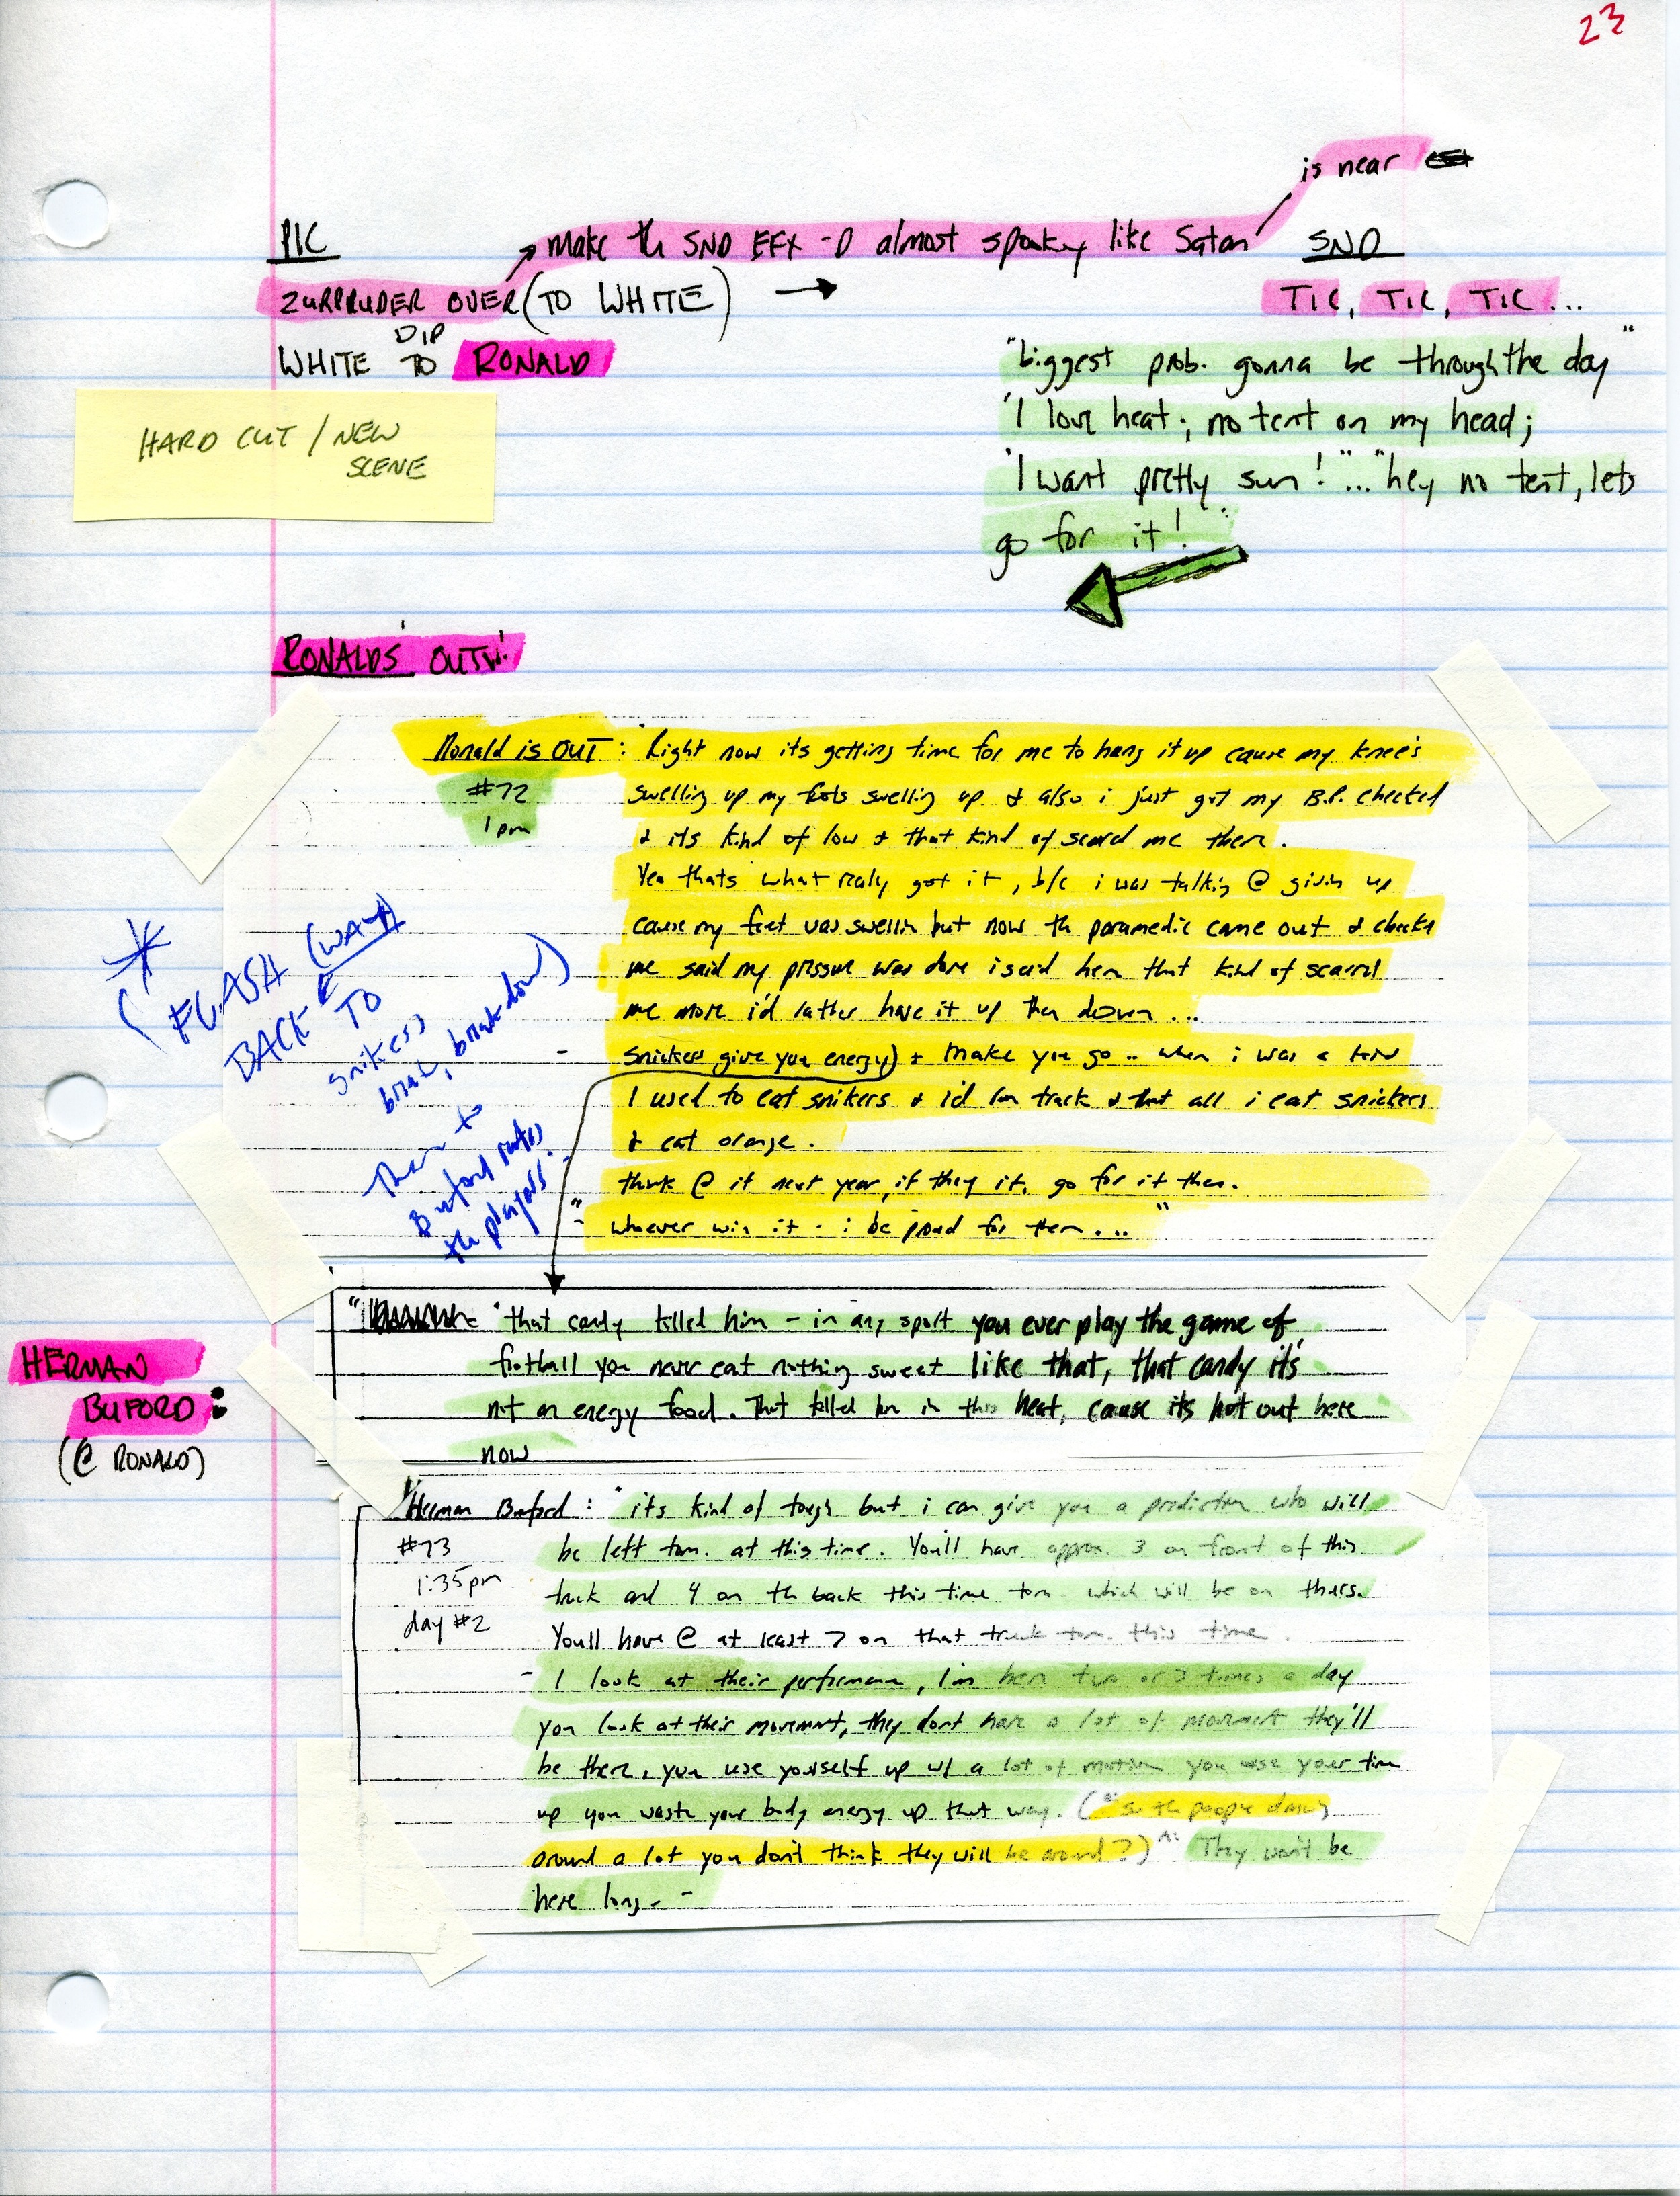 23
is near
PIC
make the SND EFX - almost spooky like Satan
SND
ZURPRUDER OVER (TO WHITE)
TIC, TIC, TIC...
DIP
WHITE TO RONALD
"biggest prob. gonna be through the day"
"I love heat; no tent on my head;
HARD CUT / NEW
SCENE
"I want pretty sun!"..."hey no tent, lets
go for it!"
RONALDS OUT!
Ronald is OUT : "Right now its getting time for me to hang it up cause my knee's
#72
swelling up my foots swelling up & also i just got my B.P. checked
1pm
& its kind of low & that kind of scared me there.
Yea thats what realy got it, b/c i was talkin @ givin up
cause my feet was swellin but now th paramedic came out & checke
me said my pressure was down i said hem that kind of scarred
me more i'd rather have it up then down ...
- snickers give you energy) & make you go .. when i was a kid
I used to eat snikers & i'd run track & that all i eat snickers
& eat orange.
think @ it next year, if they it, go for it then.
"- whoever win it - i be proud for them ..."
* (FLASH (WAY)
BACK TO
snikers
break, breakdown)
Then to
Buford rates
the players.
HERMAN
BUFORD:
(@ RONALD)
"that candy killed him - in any sport you ever play the game of
football you never eat nothing sweet like that, that candy it's
not an energy food. That killed him in this heat, cause its hot out here
now
Herman Buford : "its kind of tough but i can give you a prediction who will
#73
be left tom. at this time. You'll have approx. 3 on front of this
1:35pm
truck and 4 on th back this time tom. which will be on thurs.
day #2
You'll have @ at least 7 on that truck tom. this time.
- I look at their performance, I'm here two or 3 times a day
you look at their movement, they dont have a lot of movement they'll
be there, you use yourself up w/ a lot of motion you use your time
up you waste your body energy up that way. ("so th people dancing
around a lot you don't think they will be around?) A: They won't be
here long. -